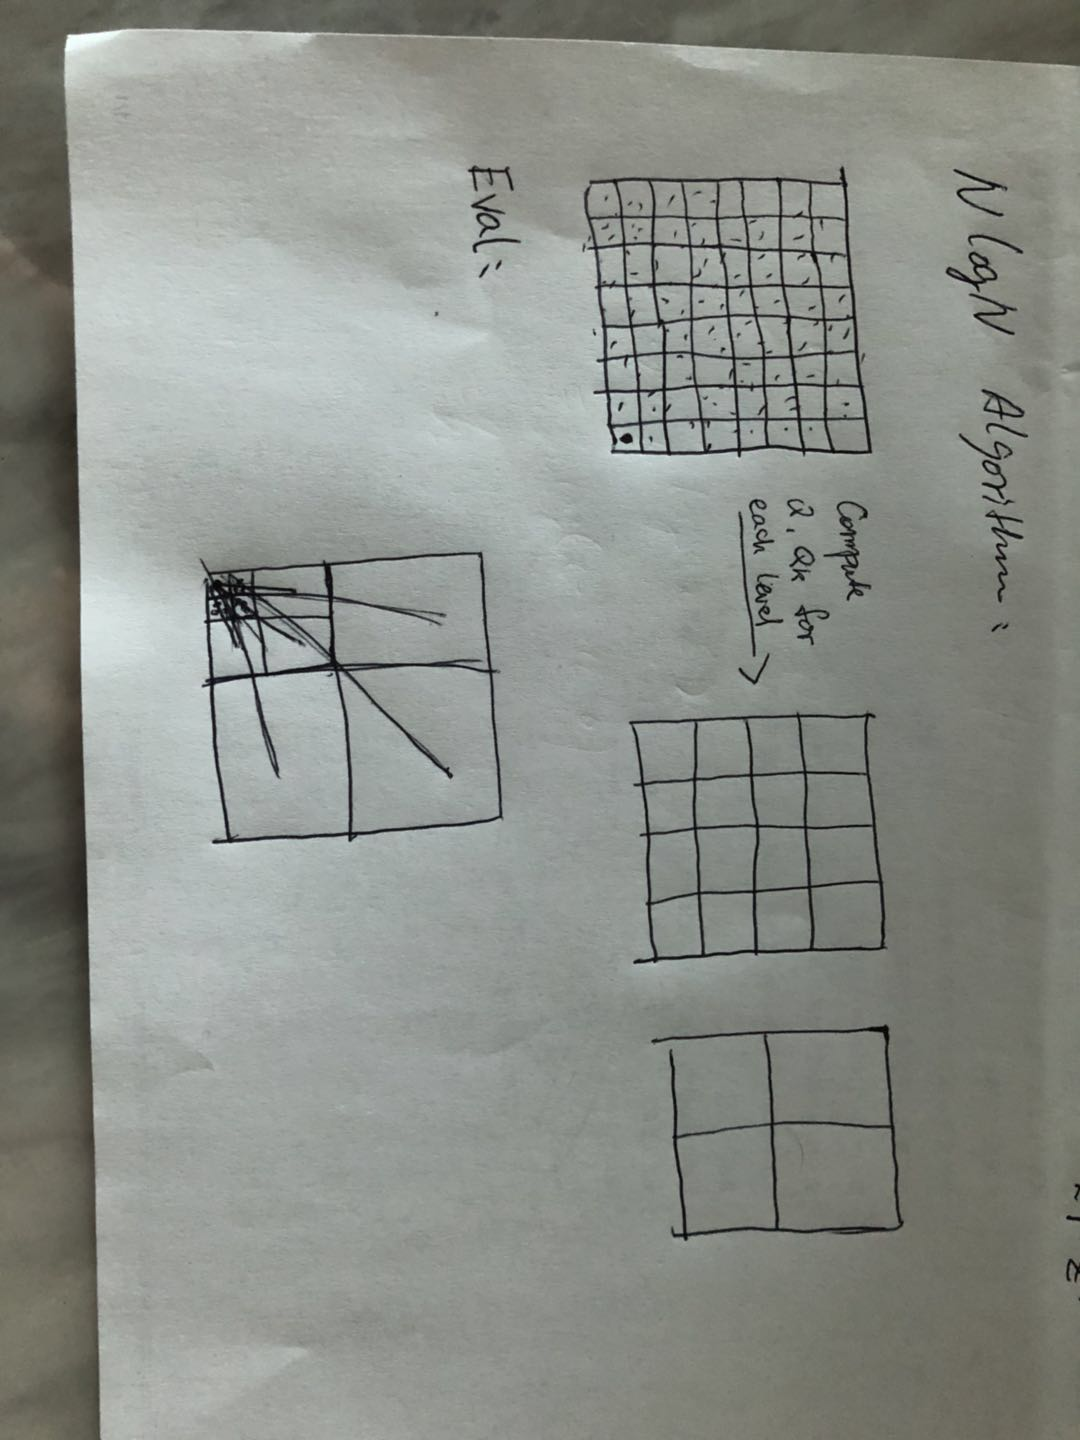 N log N Algorithm:
Compute
Q, Qk for
each level
Eval: